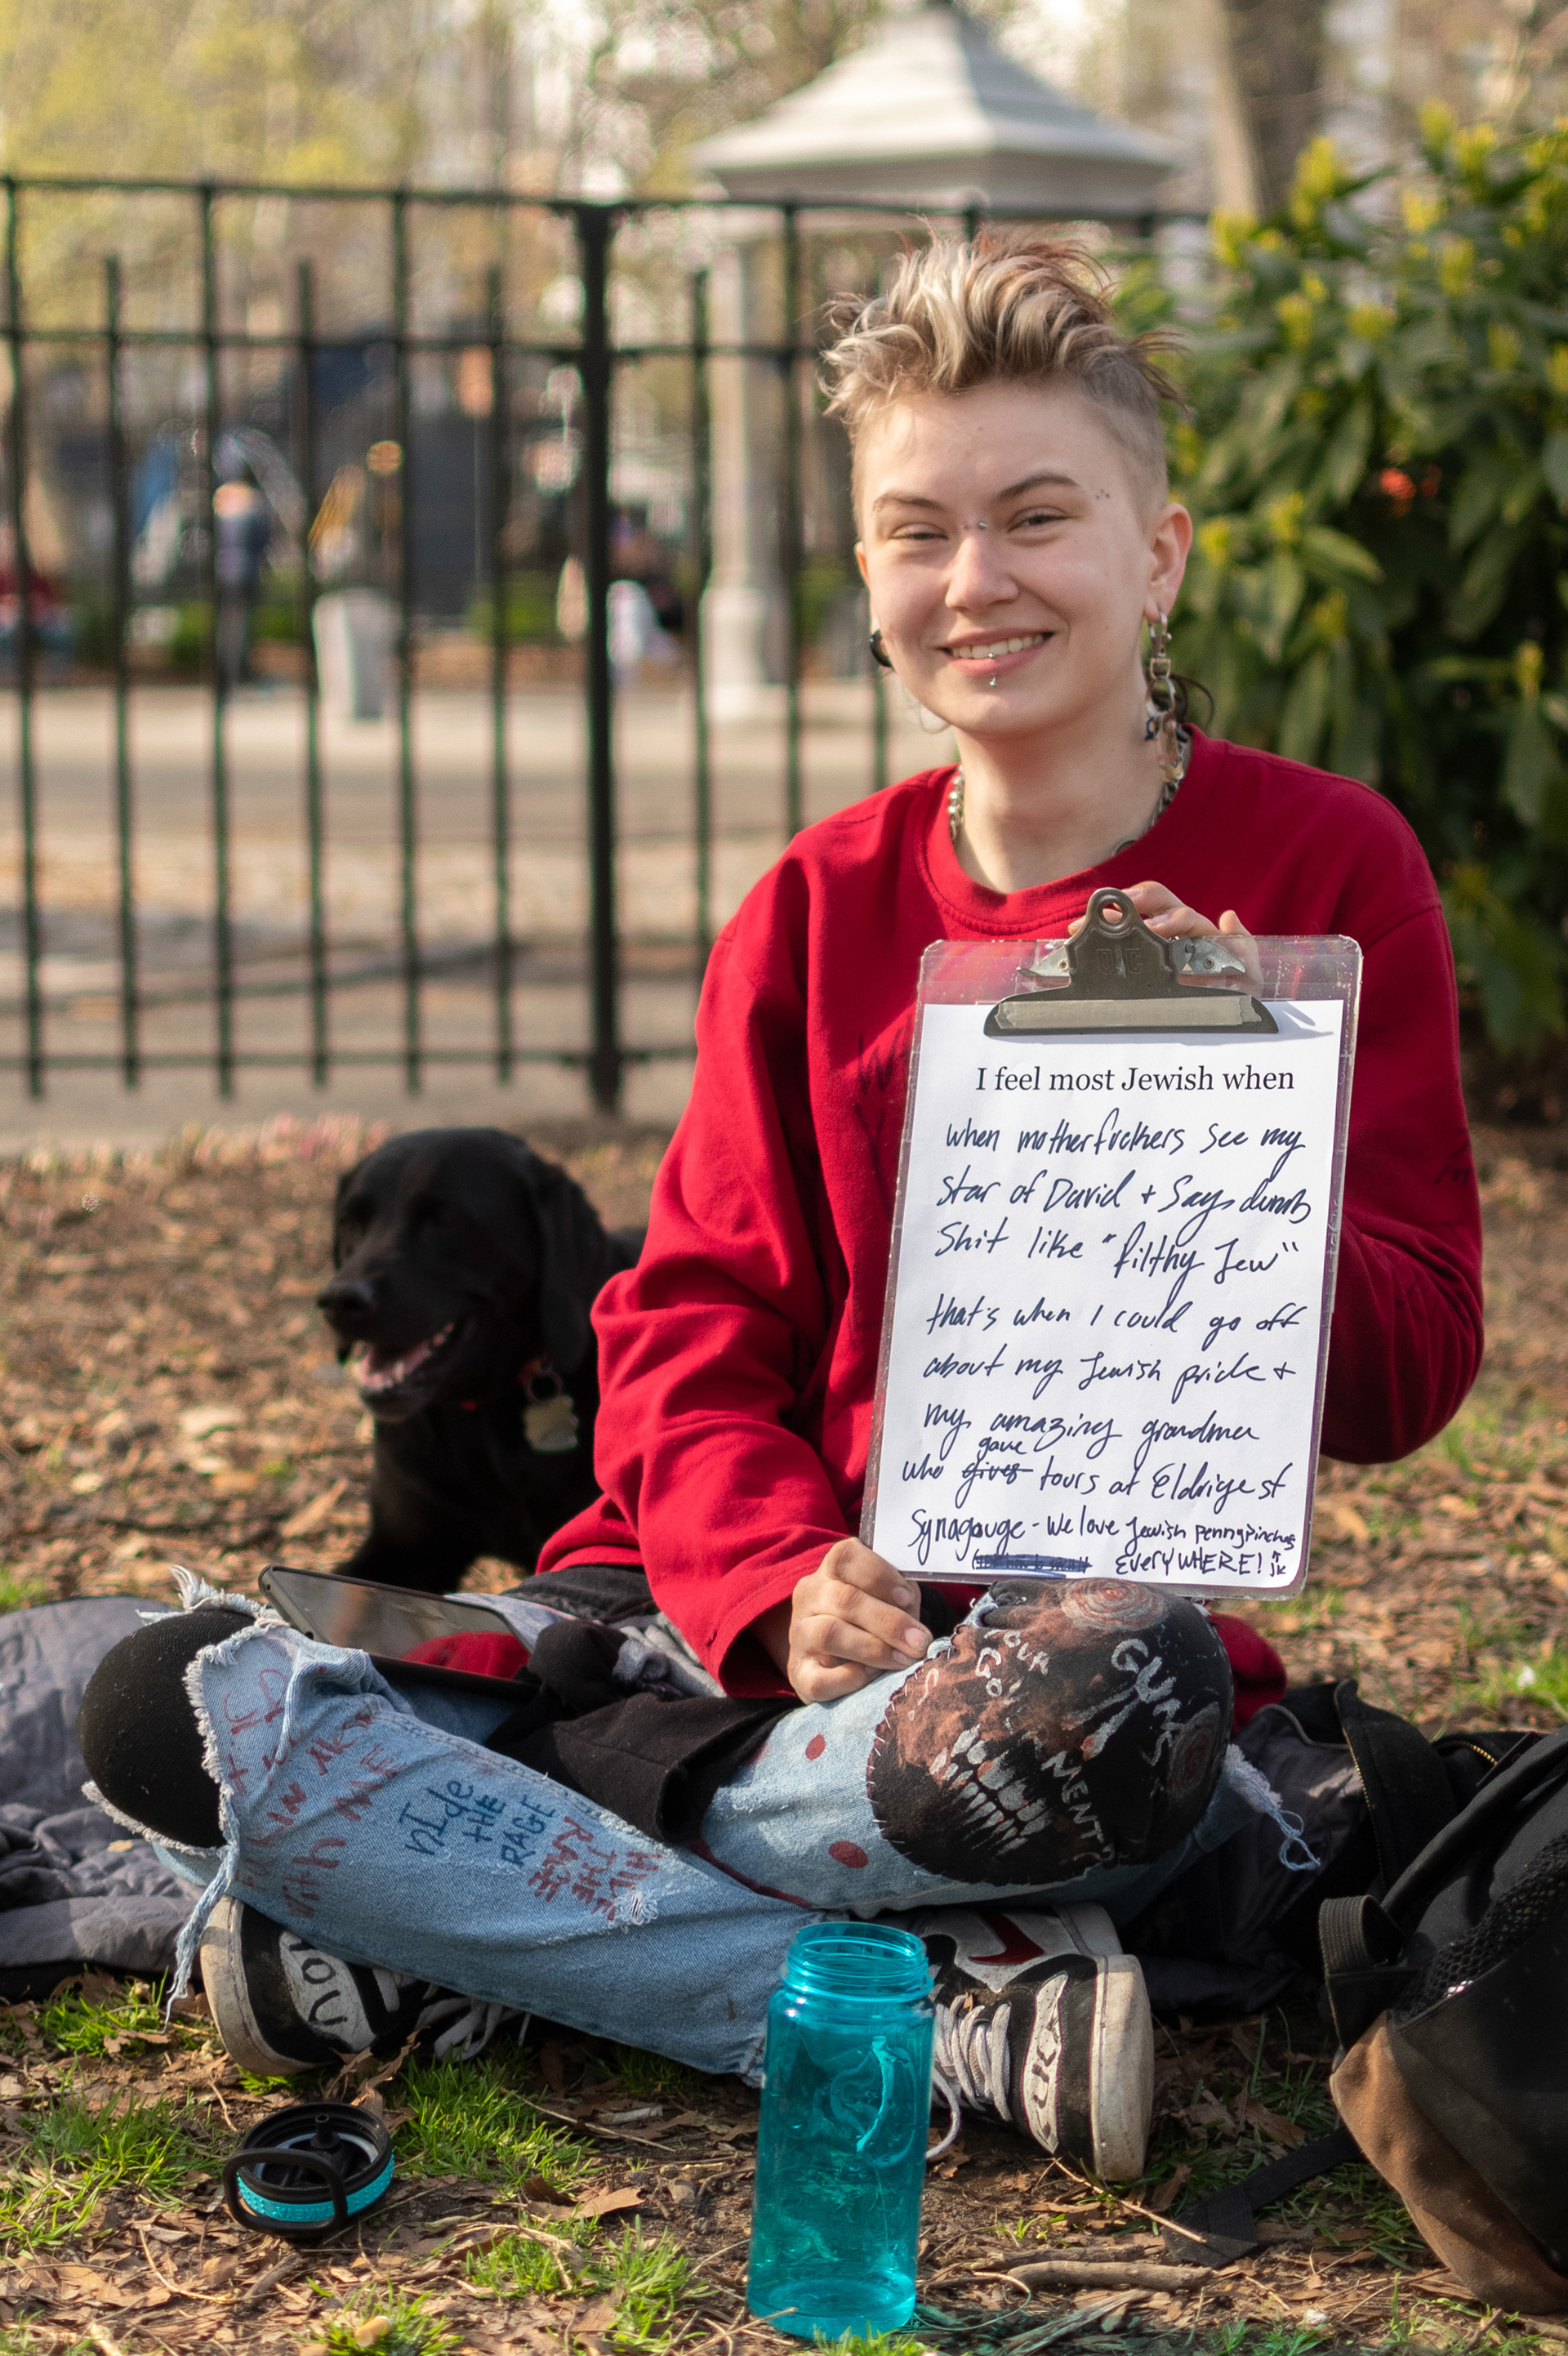 I feel most Jewish when
when motherfuckers see my
Star of David + Says dumb
Shit like "filthy Jew"
that's when I could go off
about my Jewish pride +
my amazing grandma
who gives gave tours at Eldrige st
Synagouge - We love Jewish pennypinchers
EVERYWHERE! jk
WITH ME
HIDE
THE
RAGE
RAGE
THE
OUR
GUNS